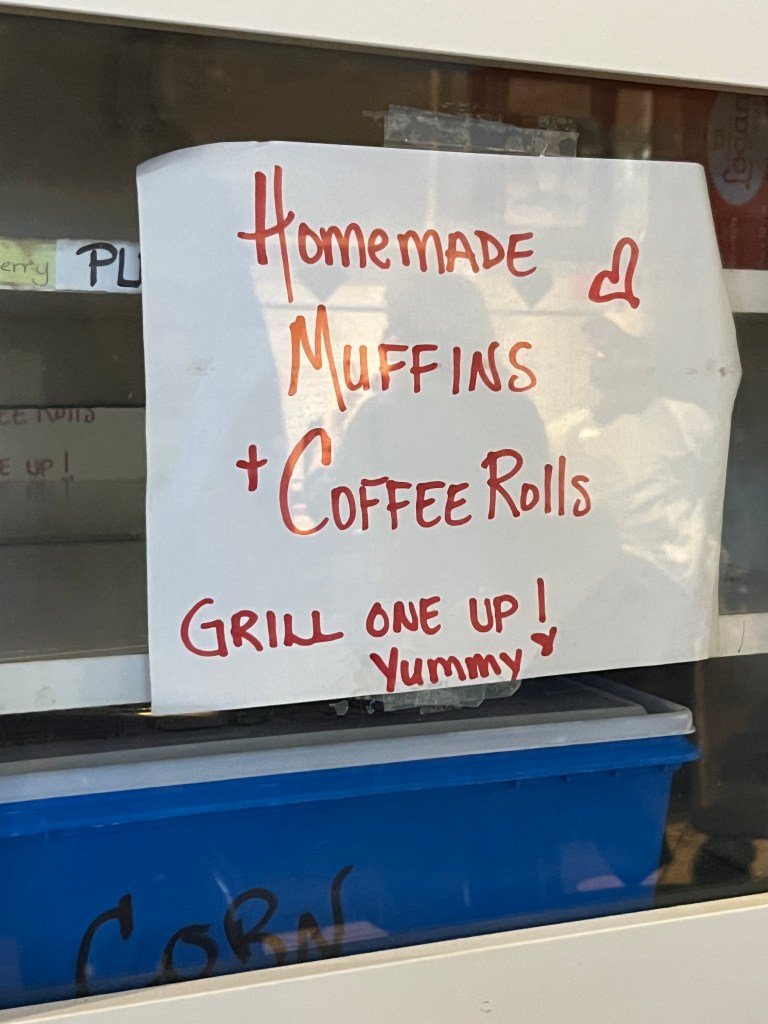 Homemade
Muffins
+ Coffee Rolls
Grill one up!
Yummy
PL
Rolls
E UP!
CORN
Logan